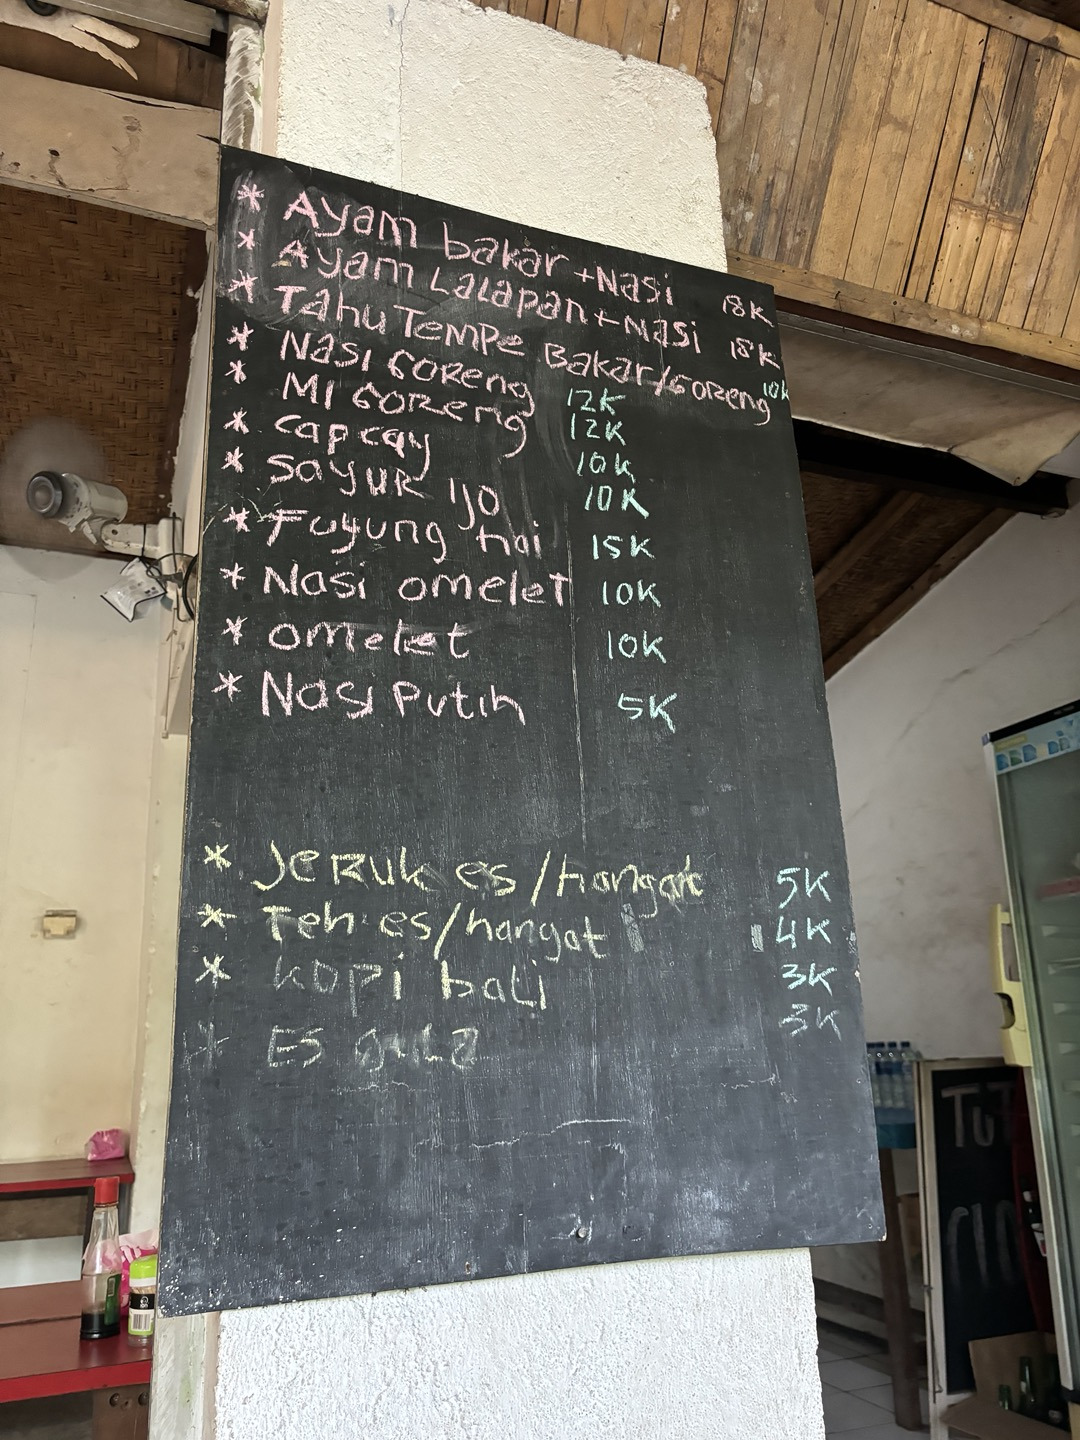 * Ayam bakar + Nasi 18K
* Ayam LaLapan + Nasi 18K
* Tahu Tempe Bakar/Goreng 10k
* Nasi Goreng 12K
* Mi Goreng 12K
* capcay 10k
* Sayur ijo 10K
* Fuyung hai 15K
* Nasi omelet 10K
* omelet 10K
* Nasi Putih 5K
* Jeruk es/hangat 5K
* Teh es/hangat 4K
* kopi bali 3K
* Es gula 3K
TUT